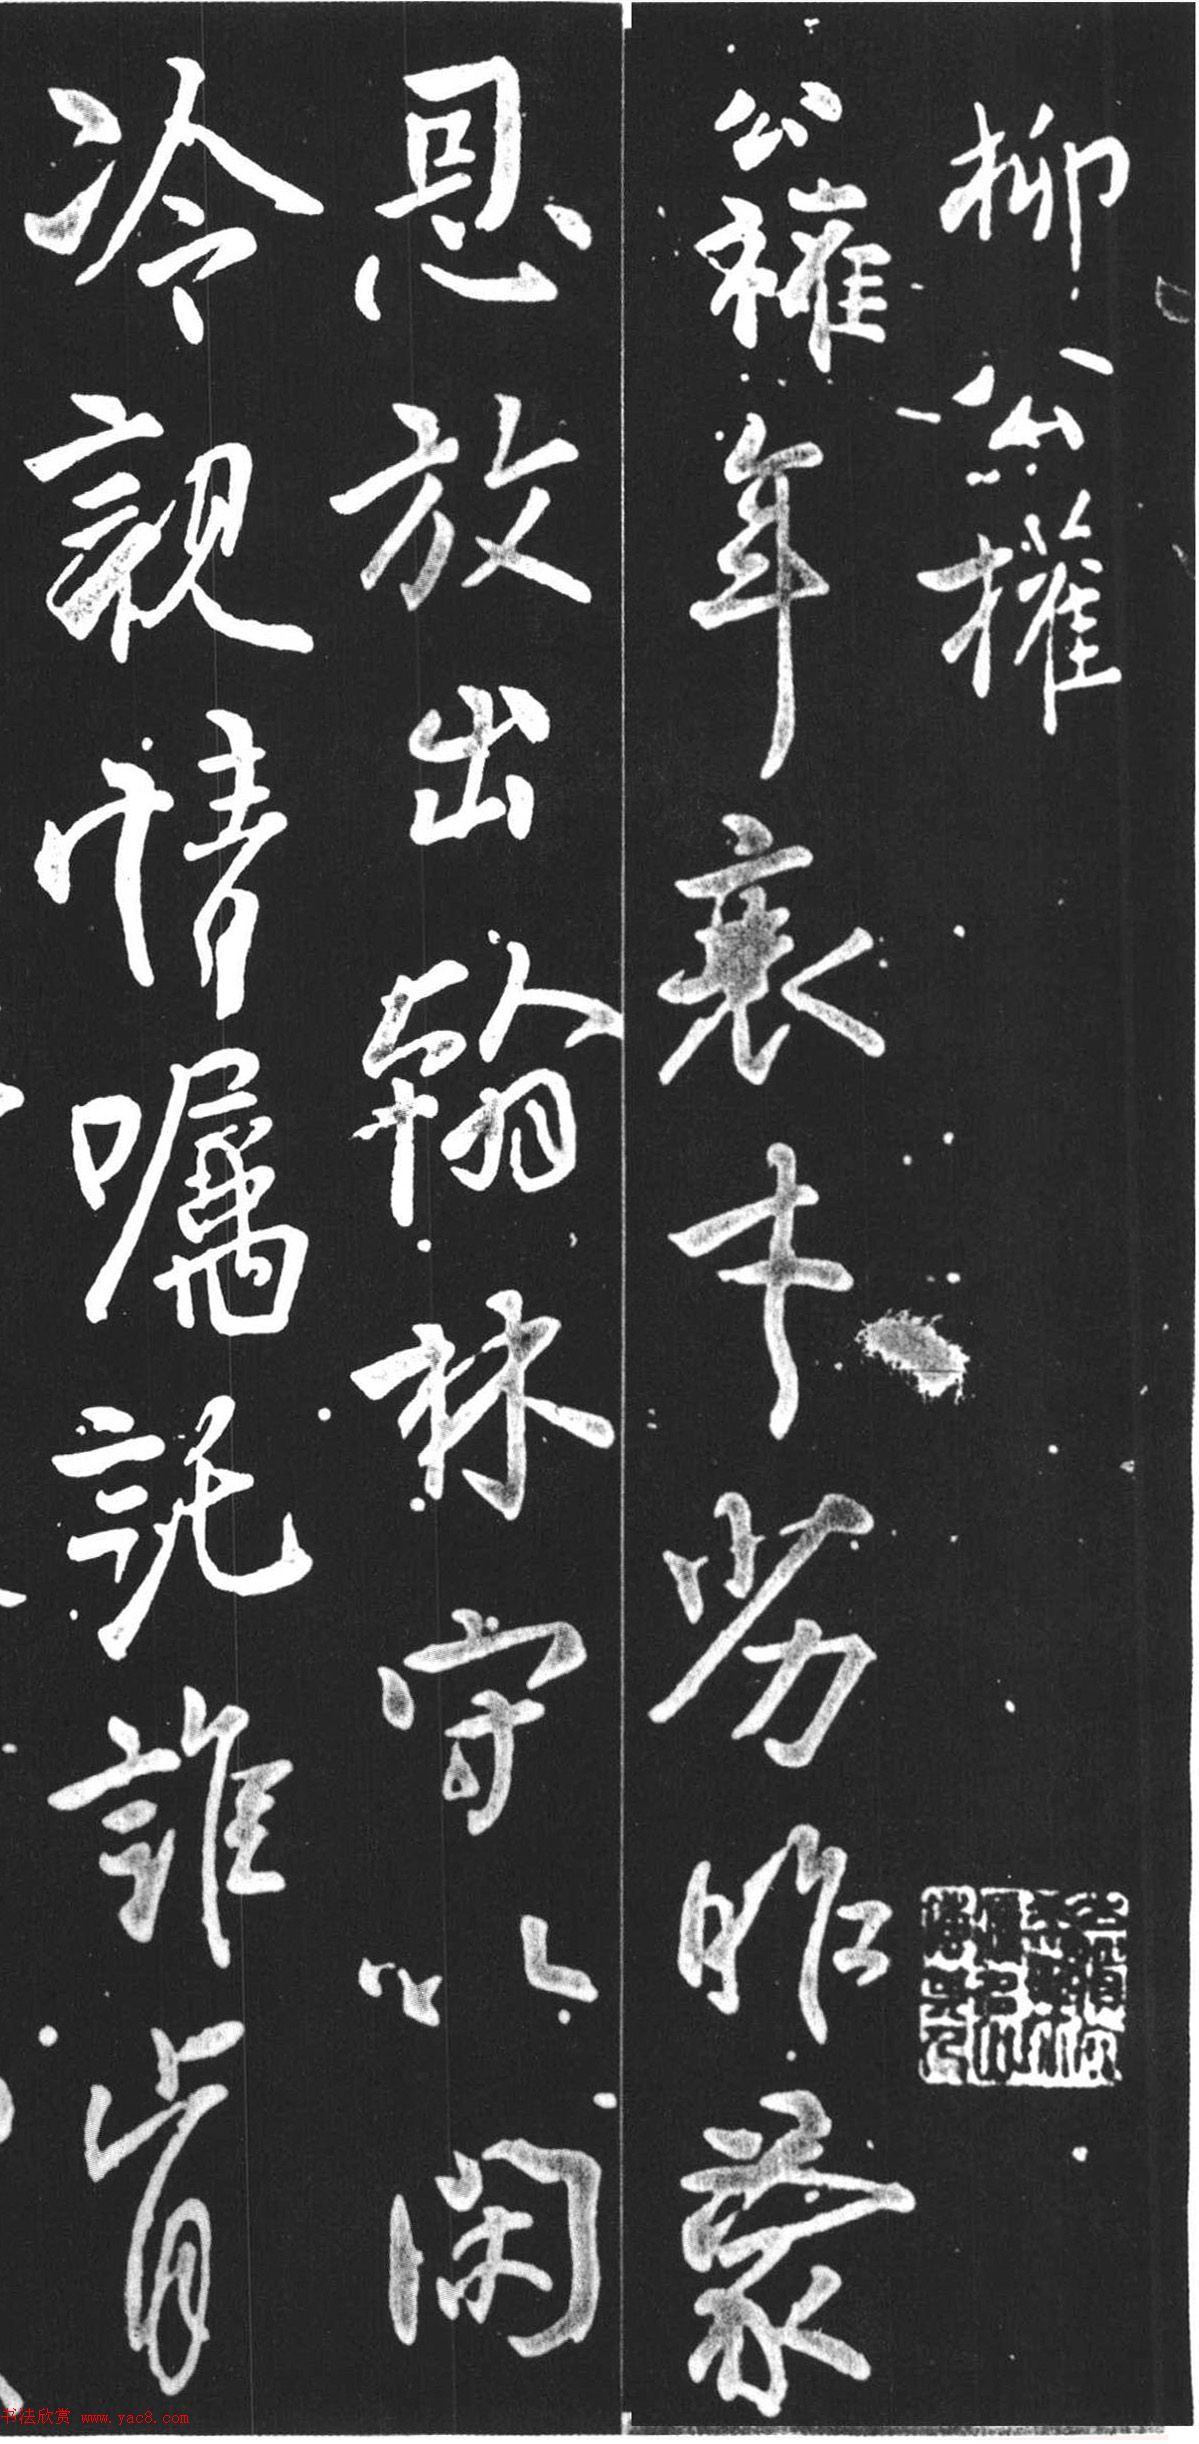 柳公權
公權年衰才劣昨蒙
恩放出翰林守以閑
冷親情嘱託誰肯
书法欣赏 www.yac8.com